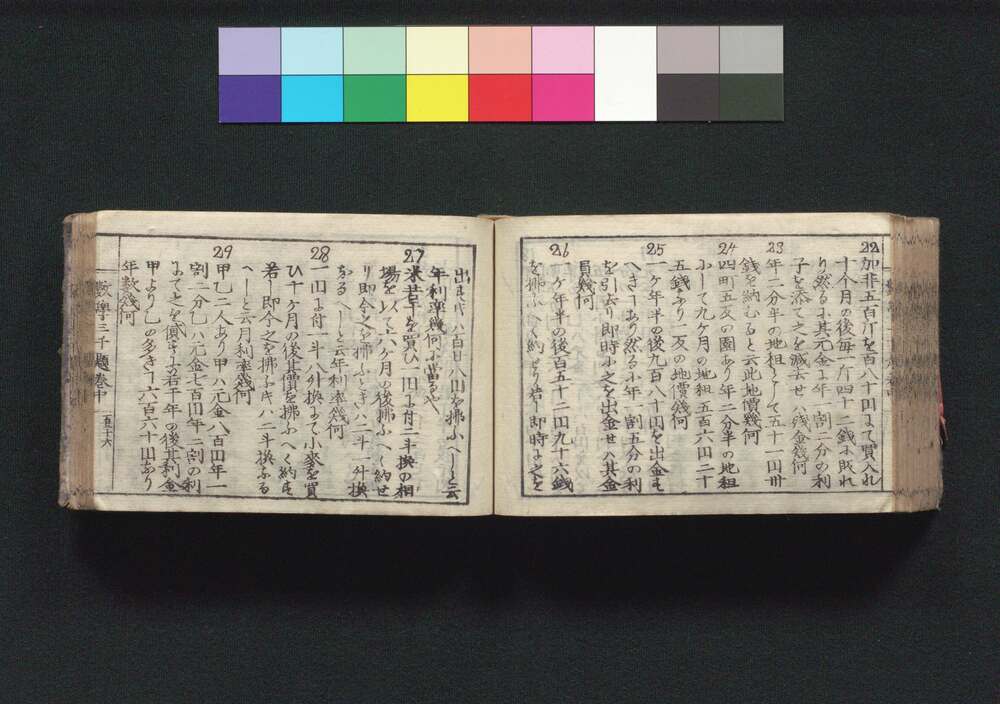 22
加非五百斤を百八十円にて買入れ
十个月の後毎一斤四十二銭に販れ
り然るに其元金に年一割二分の利
子を添て之を減ぜは残金幾何
23
年二分年の地租として五十一円卅
銭を納むると云此地價幾何
24
四町五反の圃あり年二分半の地租
にして九ヶ月の地租五百六円二十
五銭なり一反の地價幾何
25
一ケ年半の後九百八十円を出金す
へきヿあり然るに年一割五分の利
を引去り即時に之を出金せハ其金
員幾何
26
一ケ年半の後百五十二円九十六銭
を拂ふへく約せり若し即時に之を
出すときハ百廿八円を拂ふへしと云
年利率幾何に當るや
27
米若干を買ひ一円に付二斗換の相
場を以て六ヶ月の後拂ふへく約せ
り即今之を拂ふときハ二斗一升換
なるへしと云年利率幾何
28
一円に付一斗八升換にて小麥を買
ひ十ヶ月の後其價を拂ふへく約す
若し即今之を拂ふ片ハ二斗換なる
へしと云月利率幾何
29
甲乙二人あり甲ハ元金八百円年一
割二分乙ハ元金七百円年二割の利
にて之を償ふに若干年の後其利金
甲より乙の多きヿ六百六十円なり
年数幾何
数學三千題巻中
一五十六